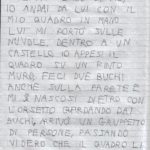 IO ANDAI DA LUI CON IL
MIO QUADRO IN MANO
LUI MI PORTÒ SULLE
NUVOLE, DENTRO A UN
CASTELLO IO APPESI IL
QUADRO SU UN FINTO
MURO, FECI DUE BUCHI
ANCHE SULLA PARETE E
MI NASCOSI DIETRO CON
L'ORSETTO GUARDANDO DAI
BUCHI, ARRIVÒ UN GRUPPETTO
DI PERSONE, PASSANDO
VIDERO CHE IL QUADRO LI